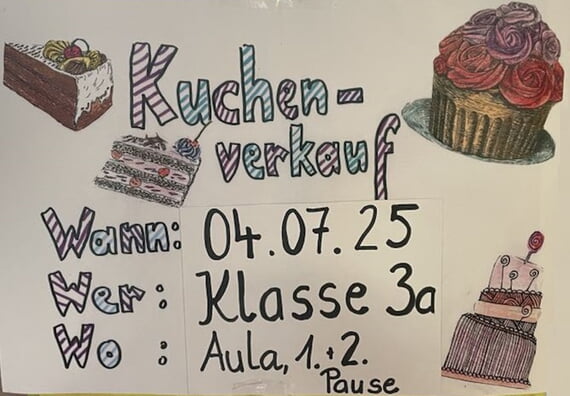 Kuchen-
verkauf
Wann: 04.07.25
Wer: Klasse 3a
Wo : Aula, 1.+2.
Pause